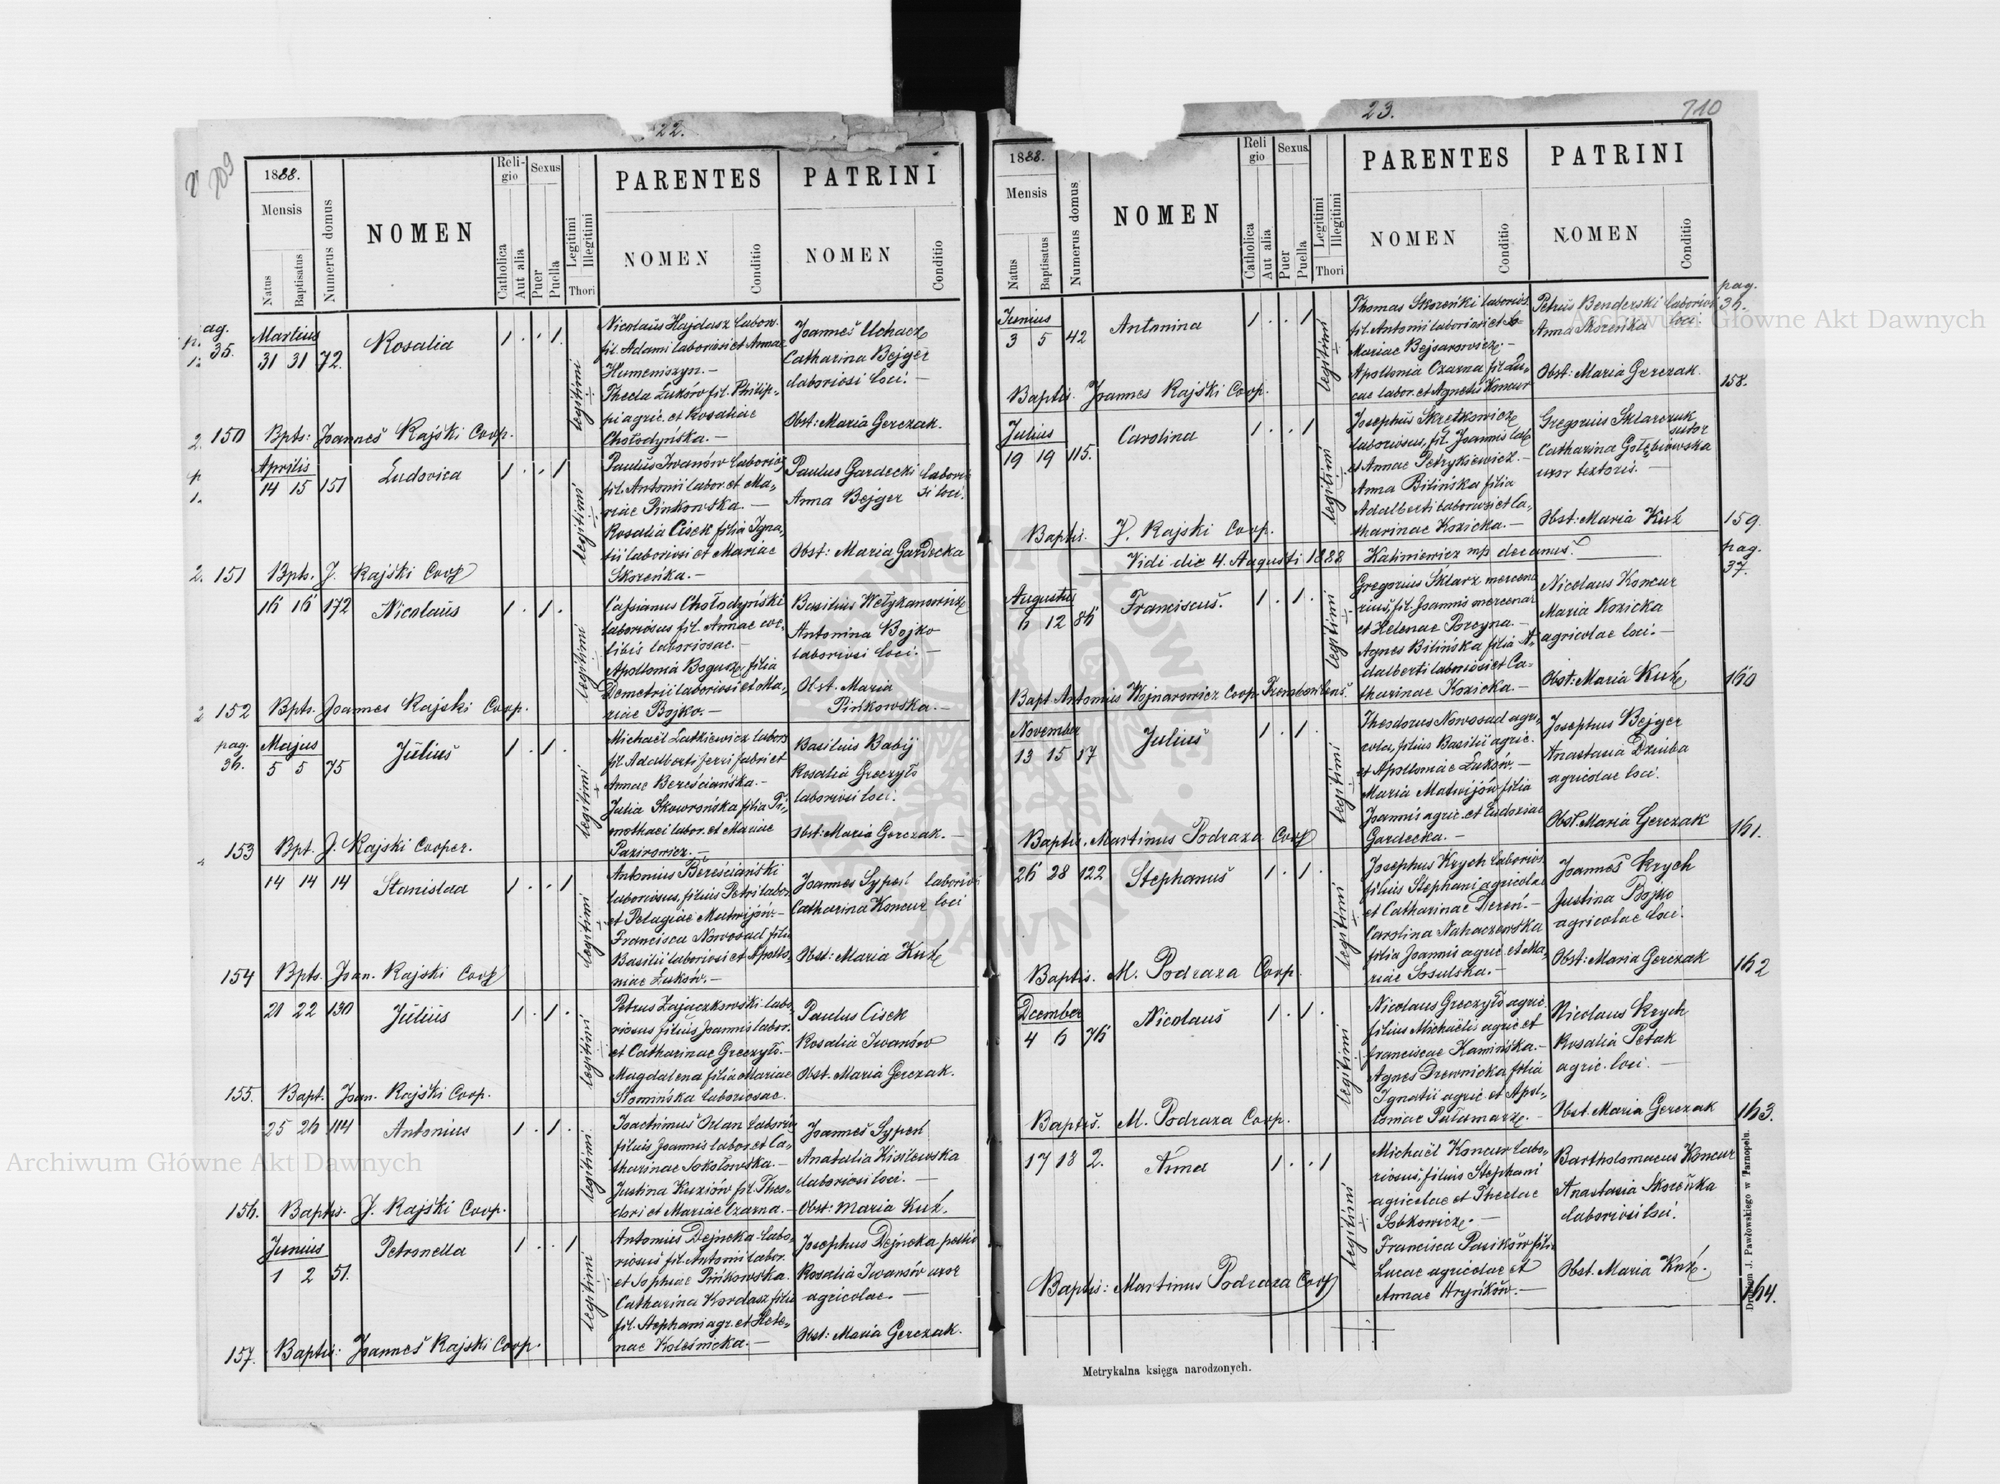 22.
709
1888.
Mensis
Natus
Baptisatus
Numerus domus
NOMEN
Reli-
gio
Catholica
Aut alia
Sexus
Puer
Puella
Legitimi
Illegitimi
Thori
PARENTES
NOMEN
Conditio
PATRINI
NOMEN
Conditio
pag.
35.
Martius
31 31 72.
Rosalia
1 . . 1
legitimi
Nicolaus Hajdasz labor.
fil. Adami laboriosi et Annae
Humeniszyn.-
Thecla Łuków fil. Philip-
pi agric. et Rosaliae
Chołodyńska.-
Joannes Uchacz
Catharina Bejger
laboriosi loci.-
Obst: Maria Gerczak.
150 Bpts: Joannes Rajski Coop.
Aprilis
14 15 151
Ludovica
1 . . 1
legitimi
Paulus Iwanów laborios
fil. Antonii labor. et Ma-
riae Pinkowska.-
Rosalia Cisek filia Igna-
tii laboriosi et Mariae
Skoreńka.-
Paulus Gardecki laborio
Anna Bejger si loci.
Obst: Maria Gardecka
151 Bpts. J. Rajski Coop
16 16 172
Nicolaus
1 . 1 .
legitimi
Cassianus Chołodyński
laboriosus fil. Annae coe-
libis laboriosae.-
Apollonia Bogusz, filia
Demetrii laboriosi et Ma-
riae Bojko.-
Basilius Wełykanowicz
Antonina Bojko
laboriosi loci.-
Obst. Maria
Pinkowska.-
152 Bpts. Joannes Rajski Coop.
pag.
36.
Majus
5 5 75
Julius
1 . 1 .
legitimi
Michaël Latkiewicz labor.
fil. Adalberti ferri fabri et
Annae Bereściańska.-
Julia Skowrońska filia Ti-
mothaei labor. et Mariae
Pazirowicz.-
Basilius Babij
Rosalia Greczyło
laboriosi loci.
Obst: Maria Gerczak.-
153 Bpt. J. Rajski Cooper.
14 14 14
Stanislaa
1 . . 1
legitimi
Antonius Bereściański
laboriosus, filius Petri labor.
et Pelagiae Matwijów.-
Francisca Nowosad filia
Basilii laboriosi et Apollo-
niae Łuków.-
Joannes Sypeń laborio
Catharina Koncur loci
Obst: Maria Kuź
154 Bpts. Joan. Rajski Coop
21 22 130
Julius
1 . 1 .
legitimi
Petrus Zajaczkowski labo-
riosus filius Joannis labor.
et Catharinae Greczyło.-
Magdalena filia Mariae
Słomińska laboriosae.
Paulus Cisek
Rosalia Iwanów
Obst. Maria Gerczak.
155. Bapt. Joan. Rajski Coop.
25 26 114
Antonius
1 . 1 .
legitimi
Joachimus Dulan laborio
filius Joannis labor. et Ca-
tharinae Sokolowska.-
Justina Kuziów fil. Theo-
dori et Mariae Czarna.-
Joannes Sypeń
Anatalia Kisilewska
laboriosi loci.-
Obst: Maria Kuź.
156. Baptis. J. Rajski Coop.
Junius
1 2 51.
Petronella
1 . . 1
legitimi
Antonius Dejneka labo-
riosus fil. Antonii labor.
et Sophiae Pinkowska.
Catharina Kordasz filia
fil. Stephani agr. et Hele-
nae Koleśnicka.-
Josephus Dejneka, pellio
Rosalia Iwanów uxor
agricolae.-
Obst: Maria Gerczak.
157. Baptis: Joannes Rajski Coop.
23.
710
1888.
Mensis
Natus
Baptisatus
Numerus domus
NOMEN
Reli
gio
Catholica
Aut alia
Sexus
Puer
Puella
Legitimi
Illegitimi
Thori
PARENTES
NOMEN
Conditio
PATRINI
NOMEN
Conditio
pag.
36.
Junius
3 5 42
Antonina
1 . . 1
legitimi
Thomas Skoreńki laborios.
fil. Antoni laboriosi et
Mariae Bejsarowicz.-
Apollonia Czarna fil. Lu-
cae labor. et Agnetis Koncur
Petrus Benderski laborios
Anna Skoreńka loci.
Obst: Maria Gerczak.
158.
Baptis. Joannes Rajski Coop.
Julius
19 19 115.
Carolina
1 . . 1
legitimi
Josephus Skretkowicz
laboriosus, fil. Joannis lab
et Annae Petrykiewicz.-
Anna Bilińska filia
Adalberti laboriosi et Ca-
tharinae Kozicka.-
Gregorius Sklarczuk
sutor
Catharina Gołębiowska
uxor textoris.-
Obst: Maria Kuź
159.
Baptis. J. Rajski Coop.
Vidi die 4. Augusti 1888 Kaliniewicz mp decanus.
pag.
37.
Augustus
6 12 86
Franciscus.
1 . 1 .
legitimi
Gregorius Sklarz mercena
rius, fil. Joannis mercenar.
et Helenae Porcyna.-
Agnes Bilińska filia A-
dalberti laboriosi et Ca-
tharinae Kozicka.-
Nicolaus Koncur
Maria Kozicka
agricolae loci.-
Obst: Maria Kuź
160
Bapt. Antonius Wojnarowicz Coop. Trembowlens.
November
13 15 17
Julius
1 . 1 .
legitimi
Theodorus Nowosad agri-
cola, filius Basilii agric.
et Apolloniae Łuków.-
Maria Matwijów filia
Joannis agric. et Eudoxiae
Gardecka.-
Josephus Bejger
Anastasia Dziuba
agricolae loci.
Obst. Maria Gerczak
161.
Baptis. Martinus Podraza Coop
26 28 122
Stephanus
1 . 1 .
legitimi
Josephus Krych laborios.
filius Stephani agricolae
et Catharinae Dereń.-
Carolina Nahaczewska
filia Joannis agric. et Ma-
riae Sosulska.-
Joannes Krych
Justina Bojko
agricolae loci.
Obst: Maria Gerczak
162
Baptis. M. Podraza Coop.
Dcember
4 6 76
Nicolaus
1 . 1 .
legitimi
Nicolaus Greczyło agric.
filius Michaëlis agric et
Franciscae Kamińska.-
Agnes Drewnicka, filia
Ignatii agric. et Apol-
loniae Pałamarz.
Nicolaus Krych
Rosalia Petak
agric. loci.-
Obst. Maria Gerczak
163.
Baptis. M. Podraza Coop.
17 18 2.
Anna
1 . . 1
legitimi
Michaël Koncur labo-
riosus, filius Stephani
agricolae et Theclae
Sobkowicz.-
Francisca Pasików filia
Lucae agricolae et
Annae Hryńków.-
Bartholomaeus Koncur
Anastasia Skoreńka
laboriosi loci.
Obst. Maria Kuź.
164.
Baptis: Martinus Podraza Coop
Drukiem J. Pawłowskiego w Tarnopolu.
Metrykalna księga narodzonych.
Archiwum Główne Akt Dawnych
Archiwum Główne Akt Dawnych